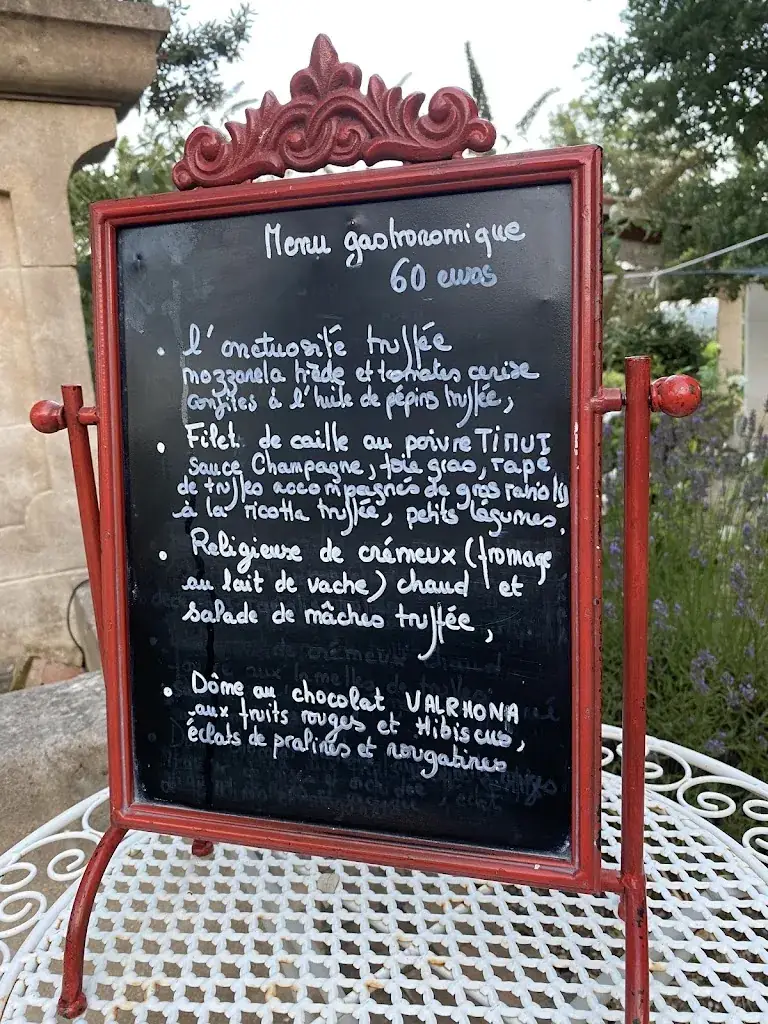 Menu gastronomique
60 euros
. l'onctuosité truffée
mozzarela tiède et tomates cerise
confites à l'huile de pépins truffée,
. Filet de caille au poivre TIMUT
sauce Champagne, foie gras, rapé
de truffes accompagnés de gros ravioli
à la ricotta truffée, petits légumes.
. Religieuse de crémeux (fromage
au lait de vache) chaud et
salade de mâches truffée,
. Dôme au chocolat VALRHONA
aux fruits rouges et Hibiscus,
éclats de pralines et nougatines